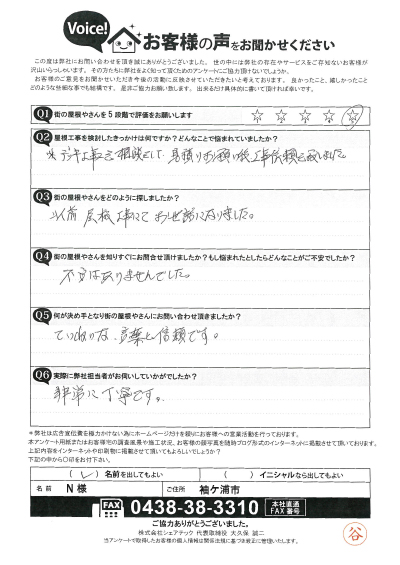 Voice!
お客様の声をお聞かせください
この度は弊社にお問い合わせを頂き誠にありがとうございました。世の中には弊社の存在やサービスをご存知ないお客様が
沢山いらっしゃいます。その方たちに弊社をよく知って頂くためのアンケートにご協力頂けないでしょうか。
お客様のご意見をお聞かせいただき今後の活動に反映させていただきたいと考えております。良かったこと、嬉しかったこと
どのような些細な事でも結構です。是非ご協力お願い致します。出来るだけ具体的に書いて頂ければ幸いです。
Q1 街の屋根やさんを5段階で評価をお願いします
☆ ☆ ☆ ☆ ☆
Q2 屋根工事を検討したきっかけは何ですか?どんなことで悩まれていましたか?
デッキ工事を相談して、見積りお願い後工事依頼を致しました。
Q3 街の屋根やさんをどのように探しましたか?
以前屋根工事にてお世話になりました。
Q4 街の屋根やさんを知りすぐにお問合せ頂けましたか?もし悩まれたとしたらどんなことがご不安でしたか?
不安はありませんでした。
Q5 何が決め手となり街の屋根やさんにお問い合わせ頂きましたか?
ていねいな、言葉と信頼です。
Q6 実際に弊社担当者がお伺いしていかがでしたか?
非常に丁寧です。
*弊社は広告宣伝費を極力かけない為にホームページだけを頼りにお客様への営業活動を行っております。
本アンケート用紙またはお客様宅の調査風景や施工状況、お客様の顔写真を随時ブログ形式のインターネットに掲載させて頂いております。
上記内容をインターネットや印刷物に掲載させて頂いてもよろしいでしょうか?
下記の中から○印をお付け下さい。
( ) 名前を出してもよい ( ) イニシャルなら出してもよい
名前 N様 ご住所 袖ケ浦市
FAX 0438-38-3310 本社直通 FAX番号
ご協力ありがとうございました。
株式会社シェアテック 代表取締役 大久保 誠二
当アンケートで取得したお客様の個人情報は関係法規に基づき厳正に管理いたします。
谷